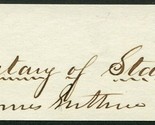 tary of Sta
mes Guthrie